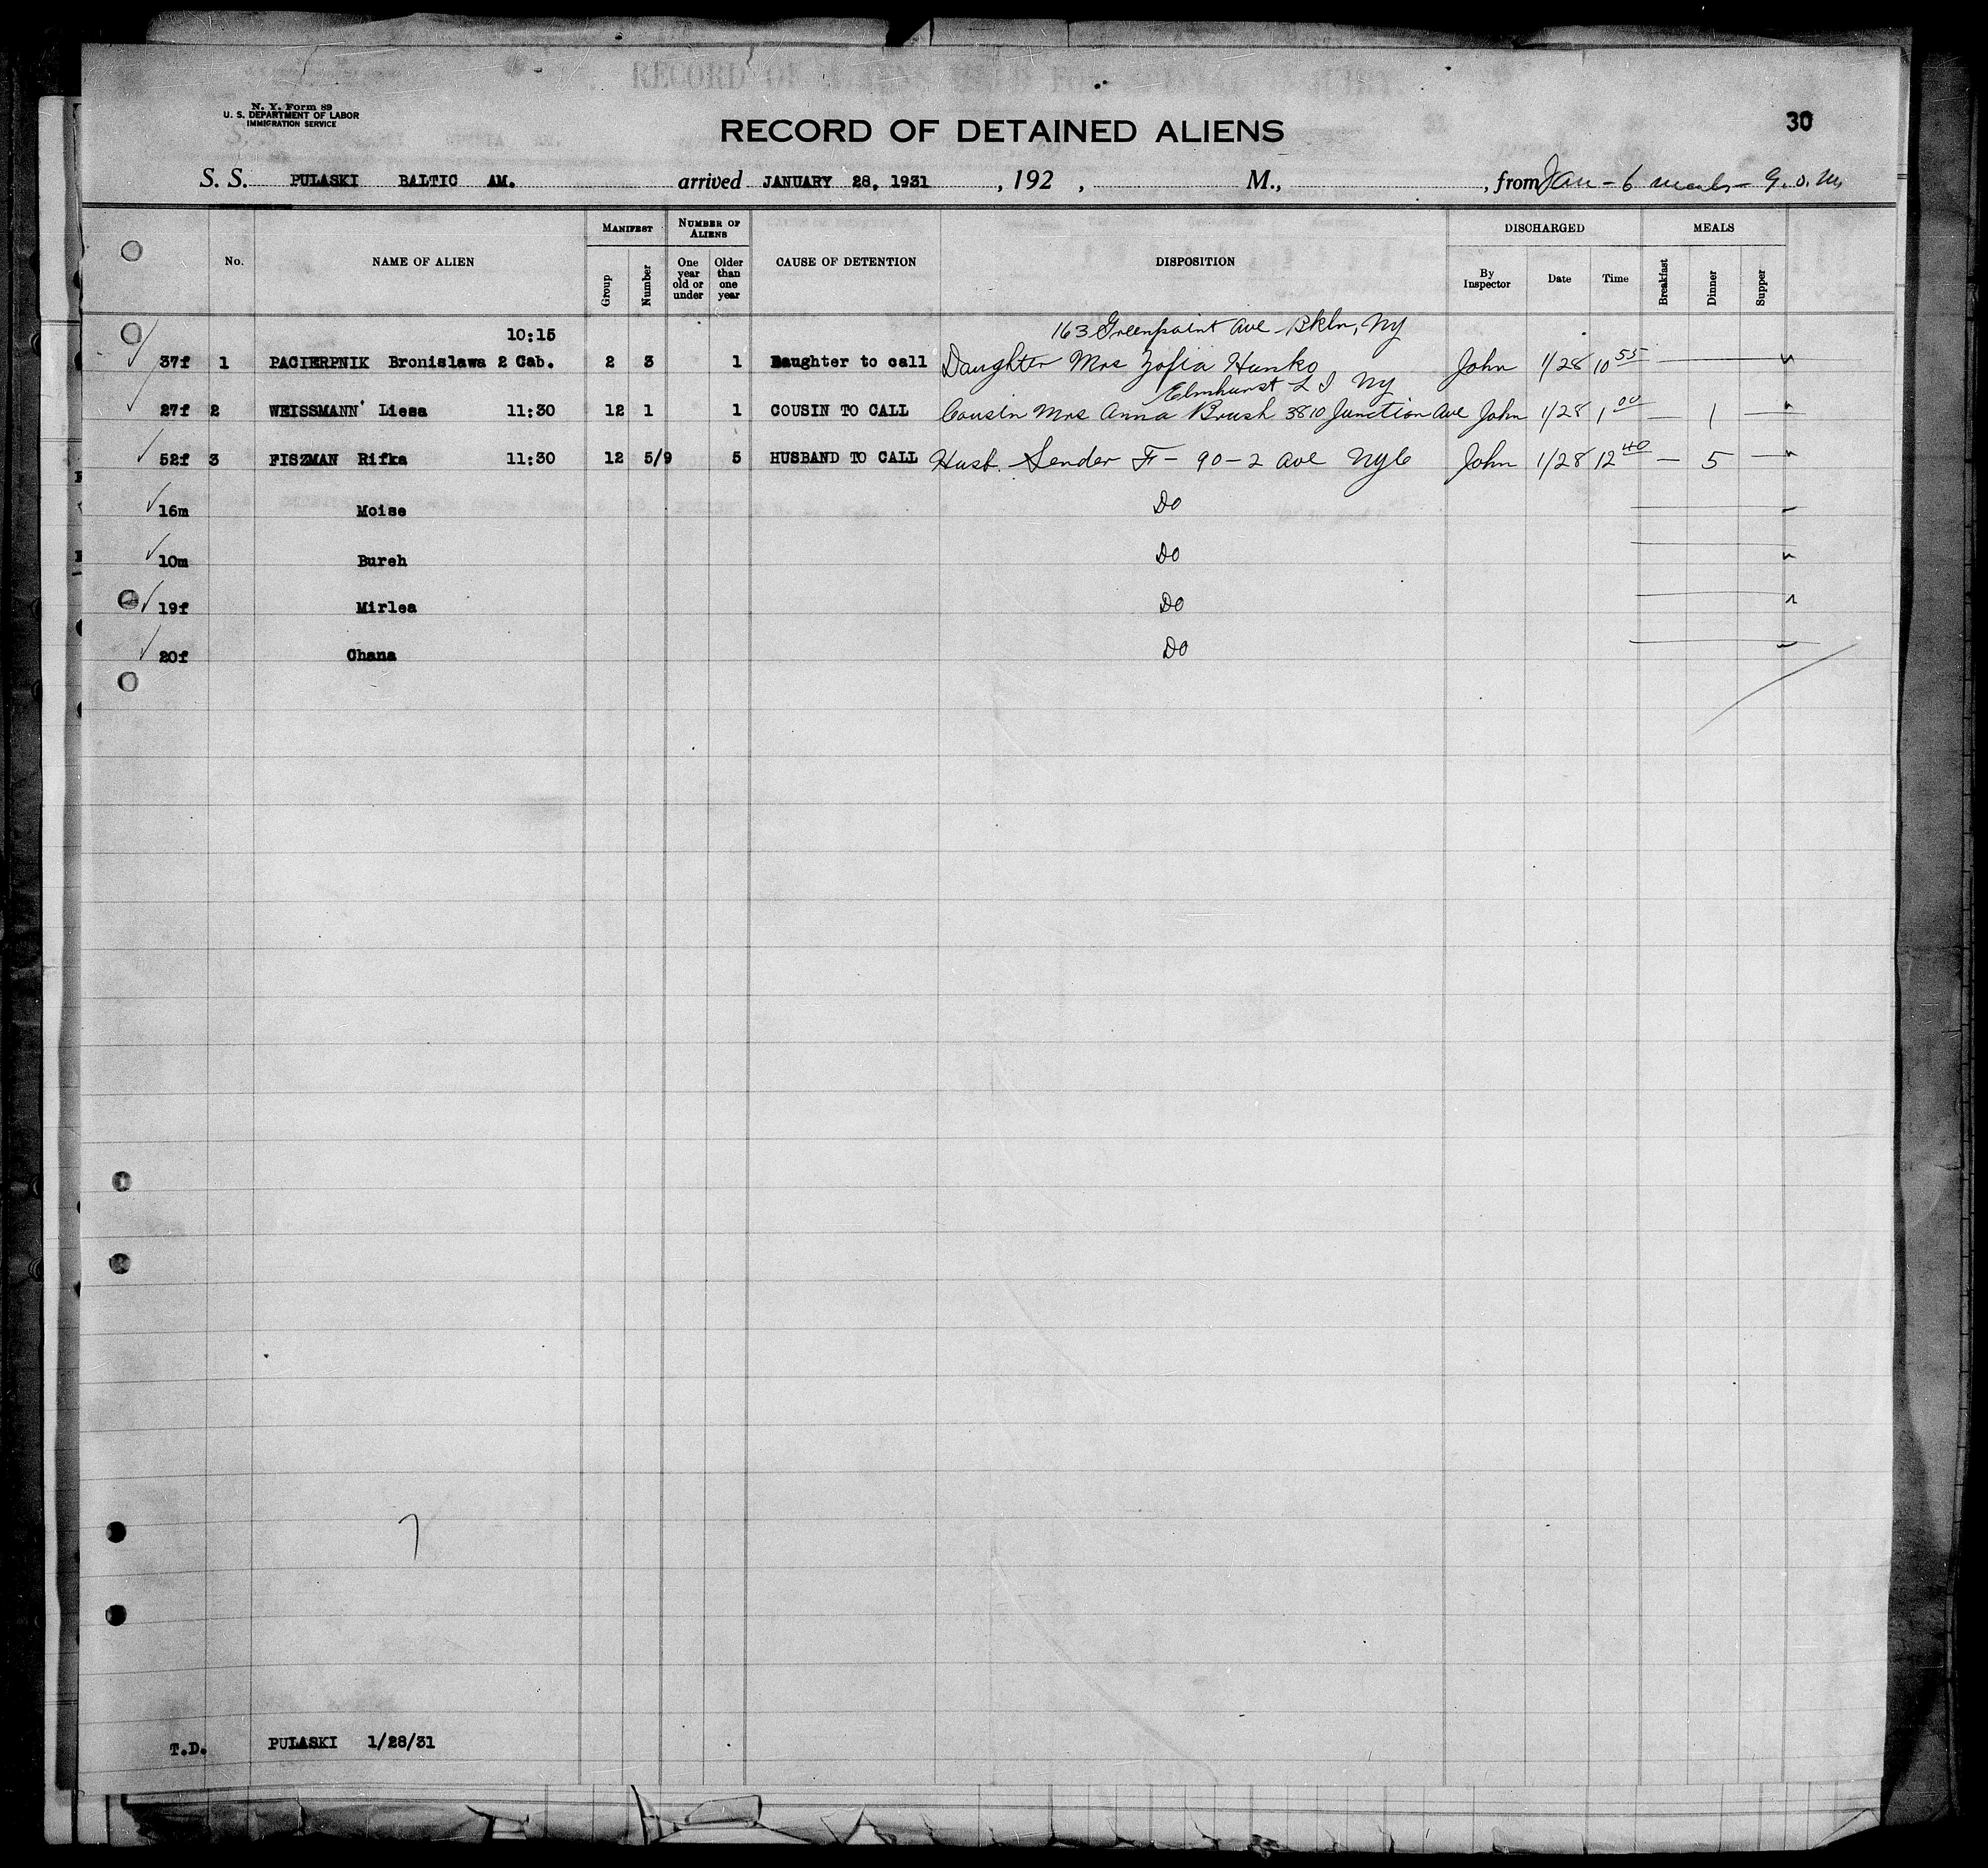 N. Y. Form 89
U. S. DEPARTMENT OF LABOR
IMMIGRATION SERVICE
RECORD OF DETAINED ALIENS
30
S. S. PULASKI BALTIC AM. arrived JANUARY 28, 1931 , 192 , M., , from Jan - 6 meals - G.O.M.
No. NAME OF ALIEN MANIFEST Group Number NUMBER OF ALIENS One year old or under Older than one year CAUSE OF DETENTION DISPOSITION DISCHARGED By Inspector Date Time MEALS Breakfast Dinner Supper
10:15 163 Greenpoint Ave - Bkln, NY
37f 1 PACIERPNIK Bronislawa 2 Cab. 2 3 1 Daughter to call Daughter Mrs Zofia Hunko John 1/28 10 55
Elmhurst L I NY
27f 2 WEISSMANN' Liesa 11:30 12 1 1 COUSIN TO CALL Cousin Mrs Anna Brush 3810 Junction Ave John 1/28 1 00 — 1 —
52f 3 FISZMAN Rifka 11:30 12 5/9 5 HUSBAND TO CALL Husb. Sender F - 90 - 2 Ave NYC John 1/28 12 40 — 5 —
16m Moise Do
10m Bureh Do
19f Mirlea Do
20f Chana Do
7
T.D. PULASKI 1/28/31